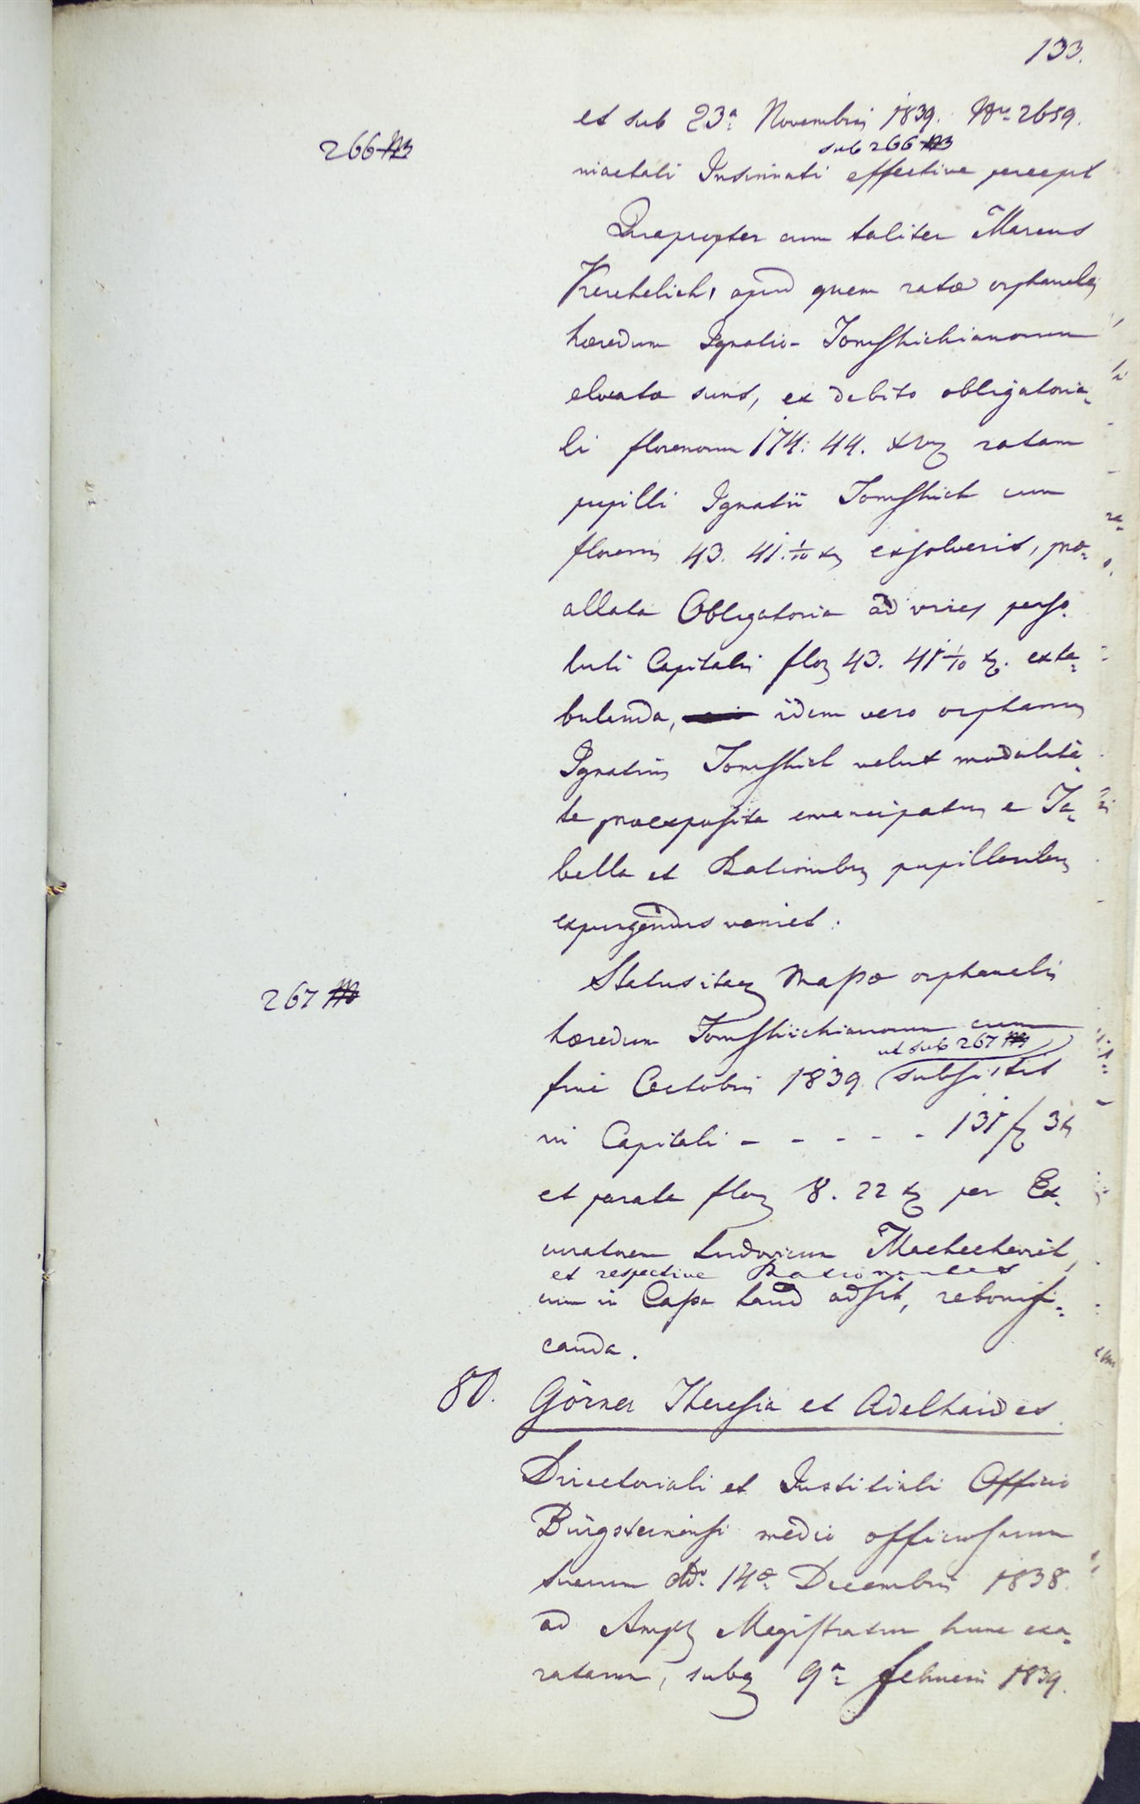 133.
et sub 23a Novembris 1839. Nro 2659.
266
sub 266
mactati Insinnati effective percept
Quapropter cum taliter Marcus
Verchelich, apud quem ratae orphanales
haeredum Ignatio- Tomshichianorum
elocatae sunt, ex debito obligatoria-
li florenorum 174: 44. xrum ratam
pupilli Ignatii Tomshich cum
florenis 43. 41 1/10 x exsolverit, prae-
allata Obligatoria ad vires perso-
luti Capitalis flor 43. 41 1/10 x. exta-
bulanda, idem vero orphanus
Ignatius Tomshich velut modalita-
te praeexposita emancipatus e Ta-
bella et Rationibus pupillaribus
expungendus veniet.
267
Status itaq Massae orphanalis
haeredum Tomshichianorum cum
ut sub 267
fine Octobris 1839. subsistit
in Capitali - - - - - 131 f 3 x
et parata flor 8. 22 x per Ex-
curatorem Ludovicum Machechevich,
et respective Rationantes
cum in Cassa haud adsit, rebonifi-
canda.
80. Görner Theresia et Adelhaides.
Directoriali et Justitiali Officio
Bürgsteinensi medio officiosarum
suarum ddo 14a Decembris 1838.
ad Ampl Magistratum hunc exa-
ratarum, subq 9a Februarii 1839.